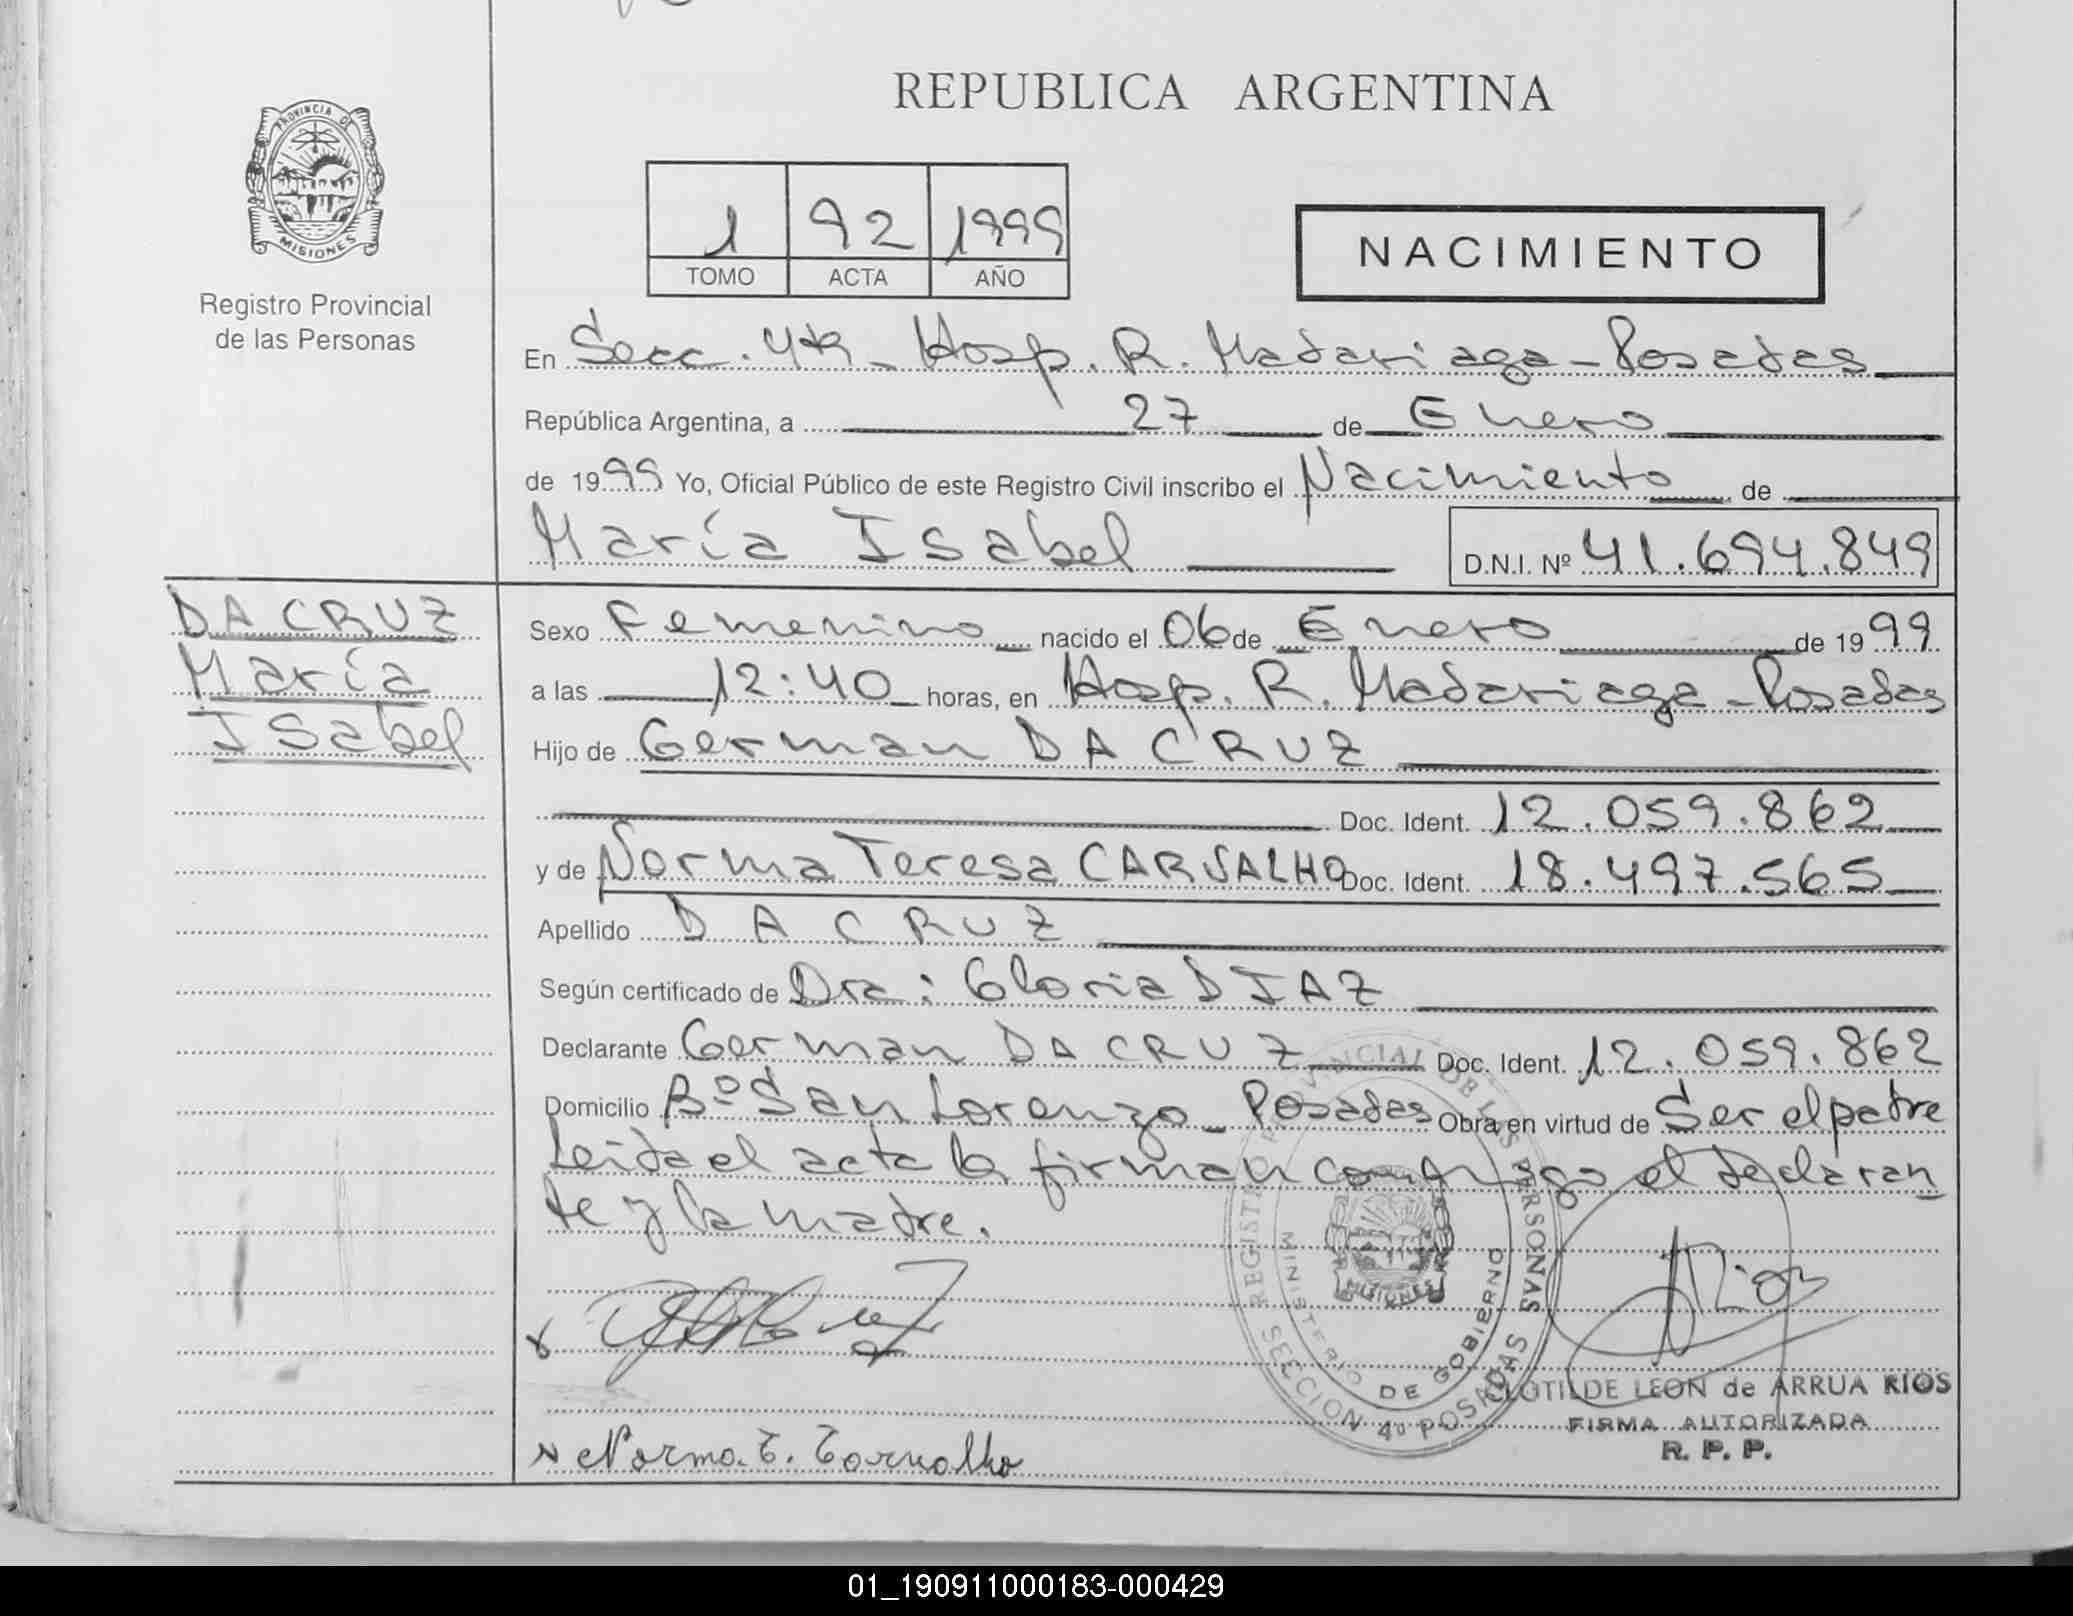 REPUBLICA ARGENTINA
PROVINCIA DE
MISIONES
Registro Provincial
de las Personas
1 92 1999
TOMO ACTA AÑO
NACIMIENTO
En Secc. 4ta - Hosp. R. Madariaga - Posadas
República Argentina, a 27 de Enero
de 1999 Yo, Oficial Público de este Registro Civil inscribo el Nacimiento de
María Isabel D.N.I. Nº 41.694.849
DA CRUZ
María
Isabel
Sexo Femenino nacido el 06 de Enero de 1999
a las 12:40 horas, en Hosp. R. Madariaga - Posadas
Hijo de German DA CRUZ
Doc. Ident. 12.059.862
y de Norma Teresa CARVALHO Doc. Ident. 18.497.565
Apellido DA CRUZ
Según certificado de Dra: Gloria DIAZ
Declarante German DA CRUZ Doc. Ident. 12.059.862
Domicilio Bº San Lorenzo - Posadas Obra en virtud de Ser el padre
Leida el acta la firman conmigo el declaran
te y la madre.
REGISTRO PROVINCIAL DE LAS PERSONAS
MINISTERIO DE GOBIERNO
MISIONES
SECCION 4º POSADAS
CLOTILDE LEON de ARRUA RIOS
FIRMA AUTORIZADA
R. P. P.
Norma. T. Carvalho
01_190911000183-000429